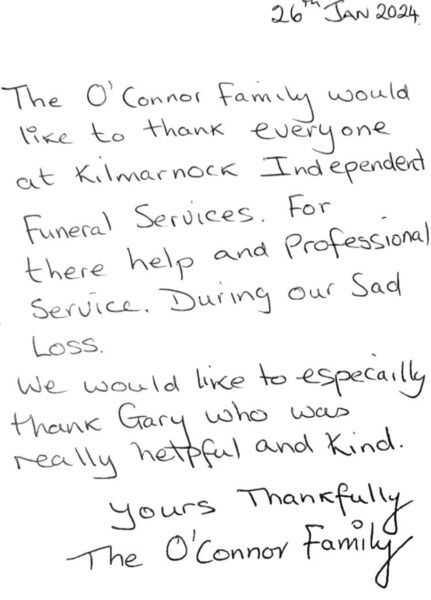 26th JAN 2024.
The O'Connor Family would
like to thank everyone
at Kilmarnock Independent
Funeral Services. For
there help and Professional
Service. During our Sad
Loss.
We would like to especailly
thank Gary who was
really helpful and kind.
Yours Thankfully
The O'Connor Family